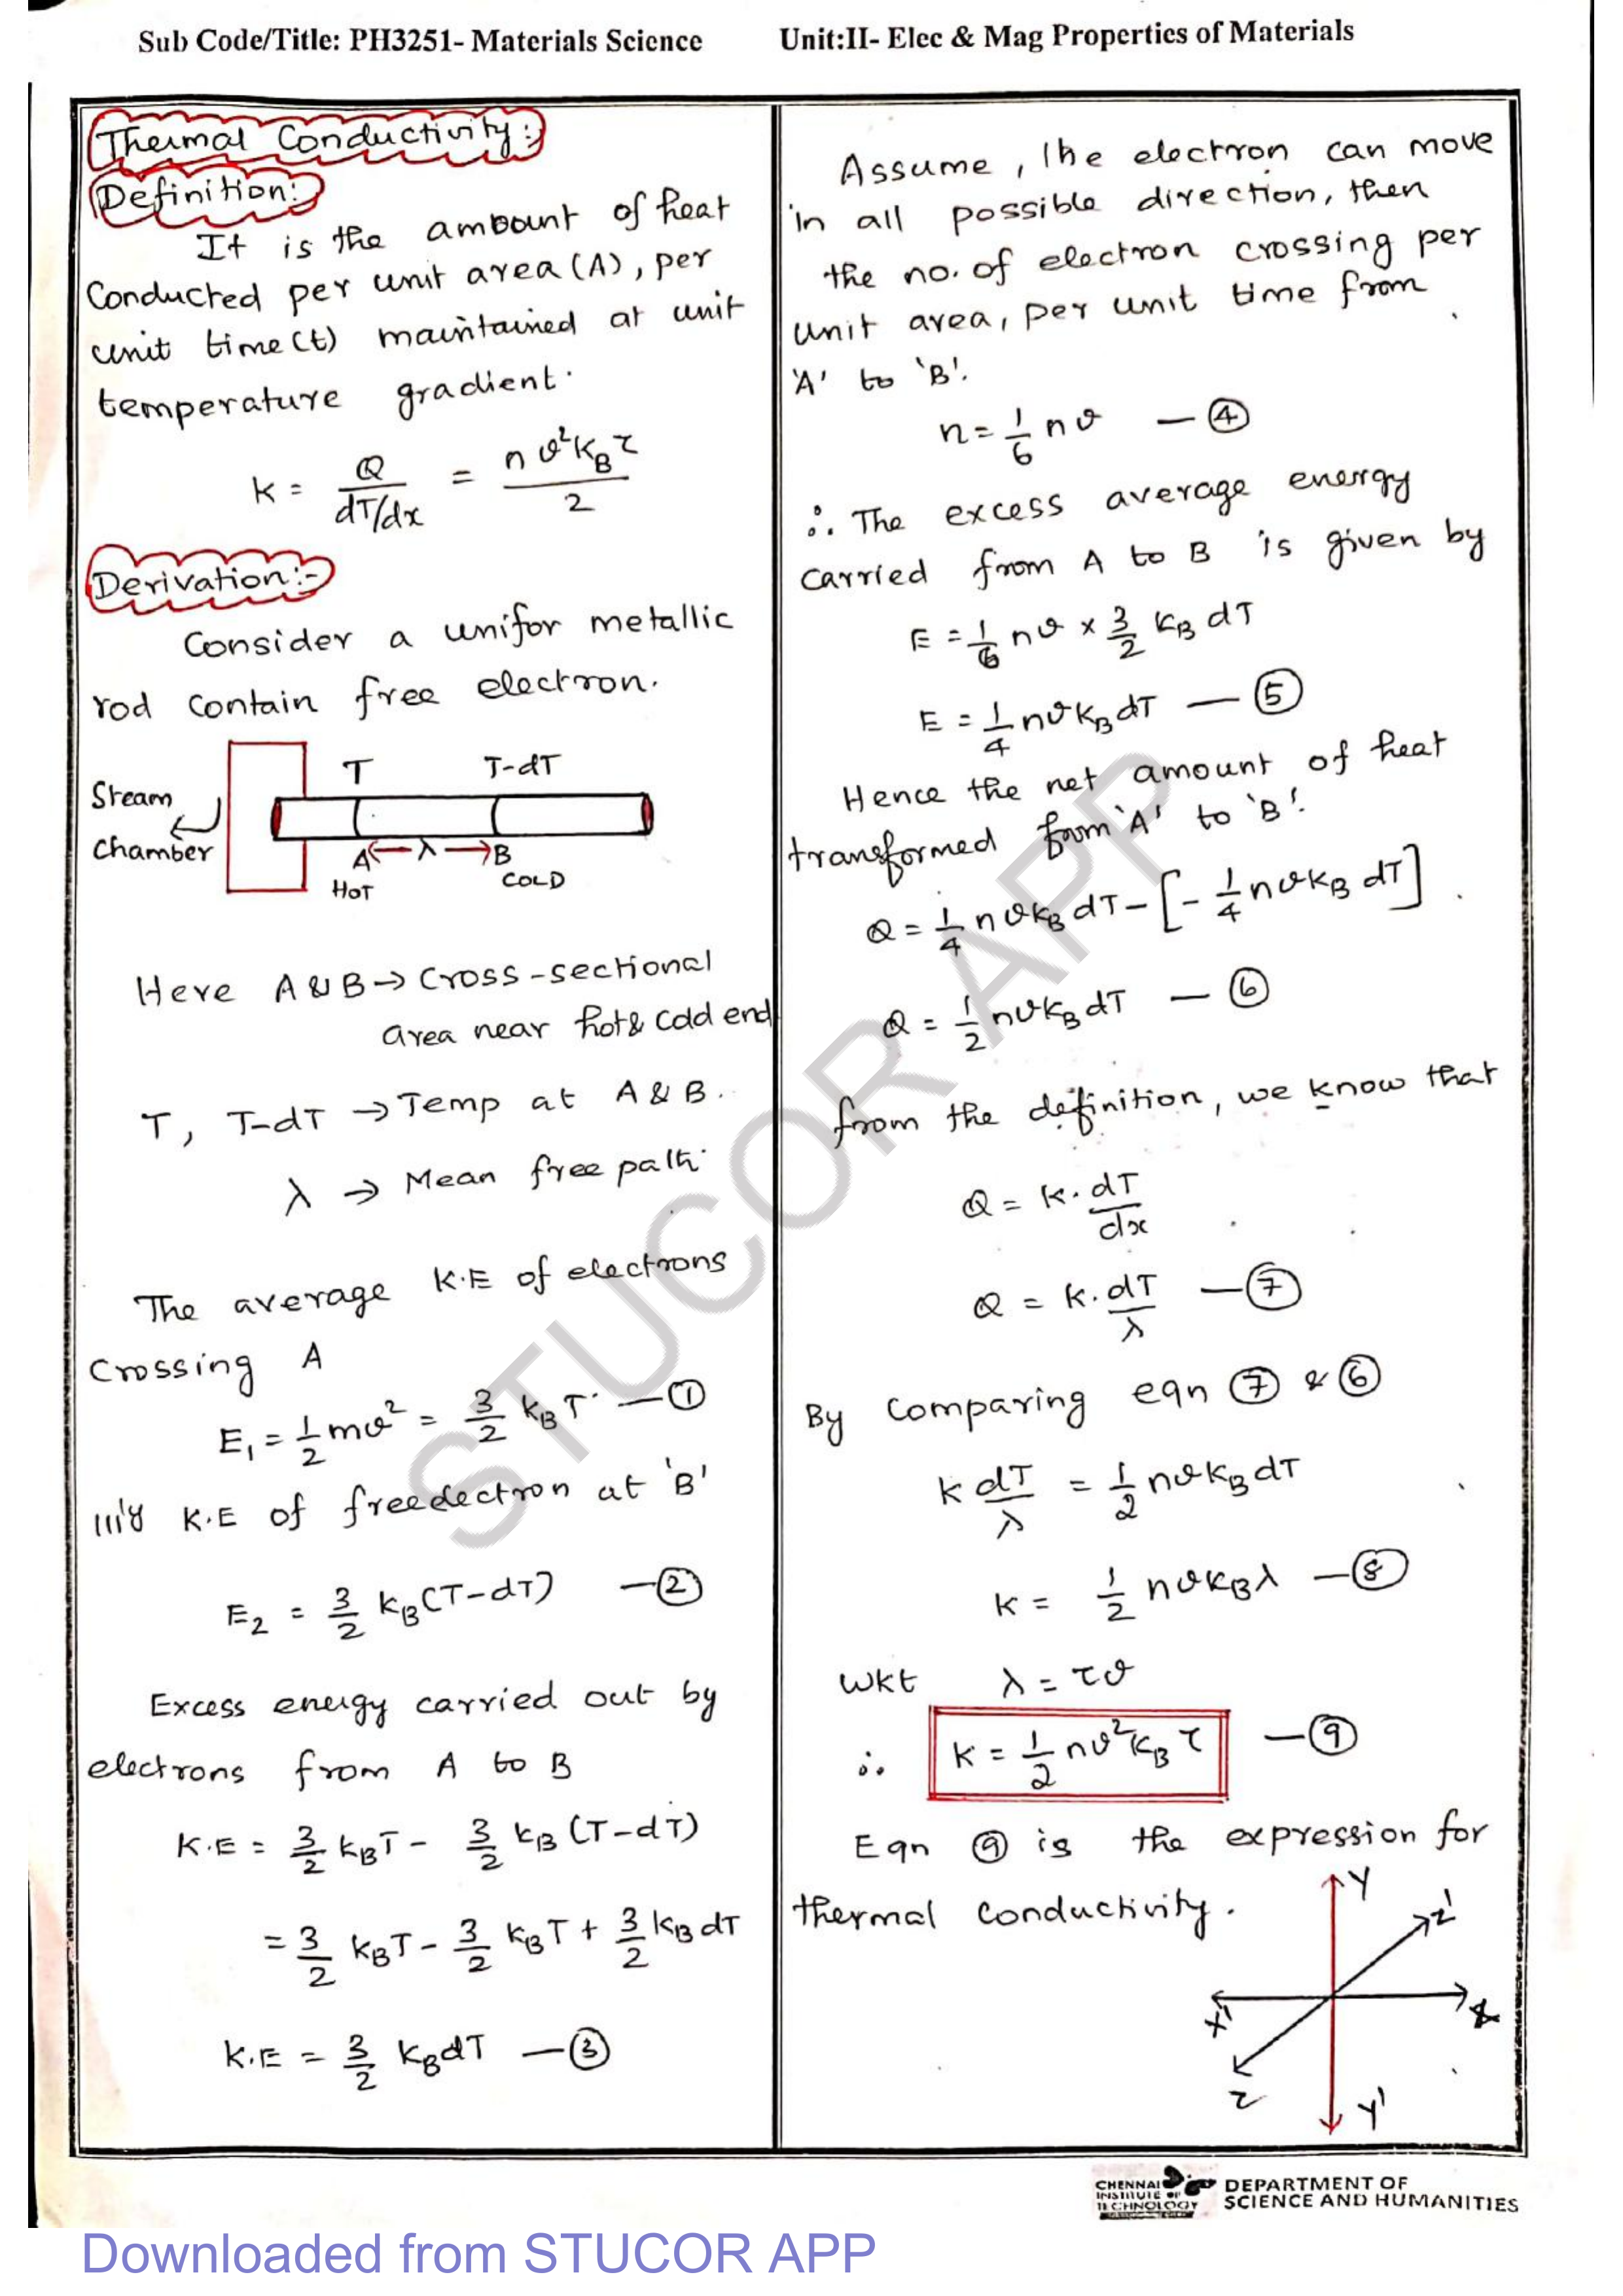 Sub Code/Title: PH3251- Materials Science Unit:II- Elec & Mag Properties of Materials
Thermal Conductivity:-
Definition:-
It is the amount of heat
Conducted per unit area (A), per
unit time (t) maintained at unit
temperature gradient.
K = Q / (dT/dx) = n v² K_B τ / 2
Derivation:-
Consider a unifor metallic
rod contain free electron.
T T-dT
Steam
chamber
A ← λ → B
HOT COLD
Here A & B → Cross-sectional
area near hot & cold end
T, T-dT → Temp at A & B.
λ → Mean free path.
The average K.E of electrons
Crossing A
E₁ = 1/2 mv² = 3/2 K_B T — ①
|||'y K.E of free electron at 'B'
E₂ = 3/2 K_B (T-dT) — ②
Excess energy carried out by
electrons from A to B
K.E = 3/2 K_B T - 3/2 K_B (T-dT)
= 3/2 K_B T - 3/2 K_B T + 3/2 K_B dT
K.E = 3/2 K_B dT — ③
Assume, the electron can move
in all possible direction, then
the no. of electron crossing per
unit area, per unit time from
'A' to 'B'.
n = 1/6 n v — ④
∴ The excess average energy
carried from A to B is given by
E = 1/6 n v × 3/2 K_B dT
E = 1/4 n v K_B dT — ⑤
Hence the net amount of heat
transformed from 'A' to 'B'.
Q = 1/4 n v K_B dT - [- 1/4 n v K_B dT]
Q = 1/2 n v K_B dT — ⑥
from the definition, we know that
Q = K. dT/dx
Q = K. dT/λ — ⑦
By comparing eqn ⑦ & ⑥
K dT/λ = 1/2 n v K_B dT
K = 1/2 n v K_B λ — ⑧
wkt λ = τv
∴ K = 1/2 n v² K_B τ — ⑨
Eqn ⑨ is the expression for
thermal conductivity.
Y
Z'
X' X
Z
Y'
STUCOR APP
CHENNAI INSTITUTE OF TECHNOLOGY
DEPARTMENT OF
SCIENCE AND HUMANITIES
Downloaded from STUCOR APP